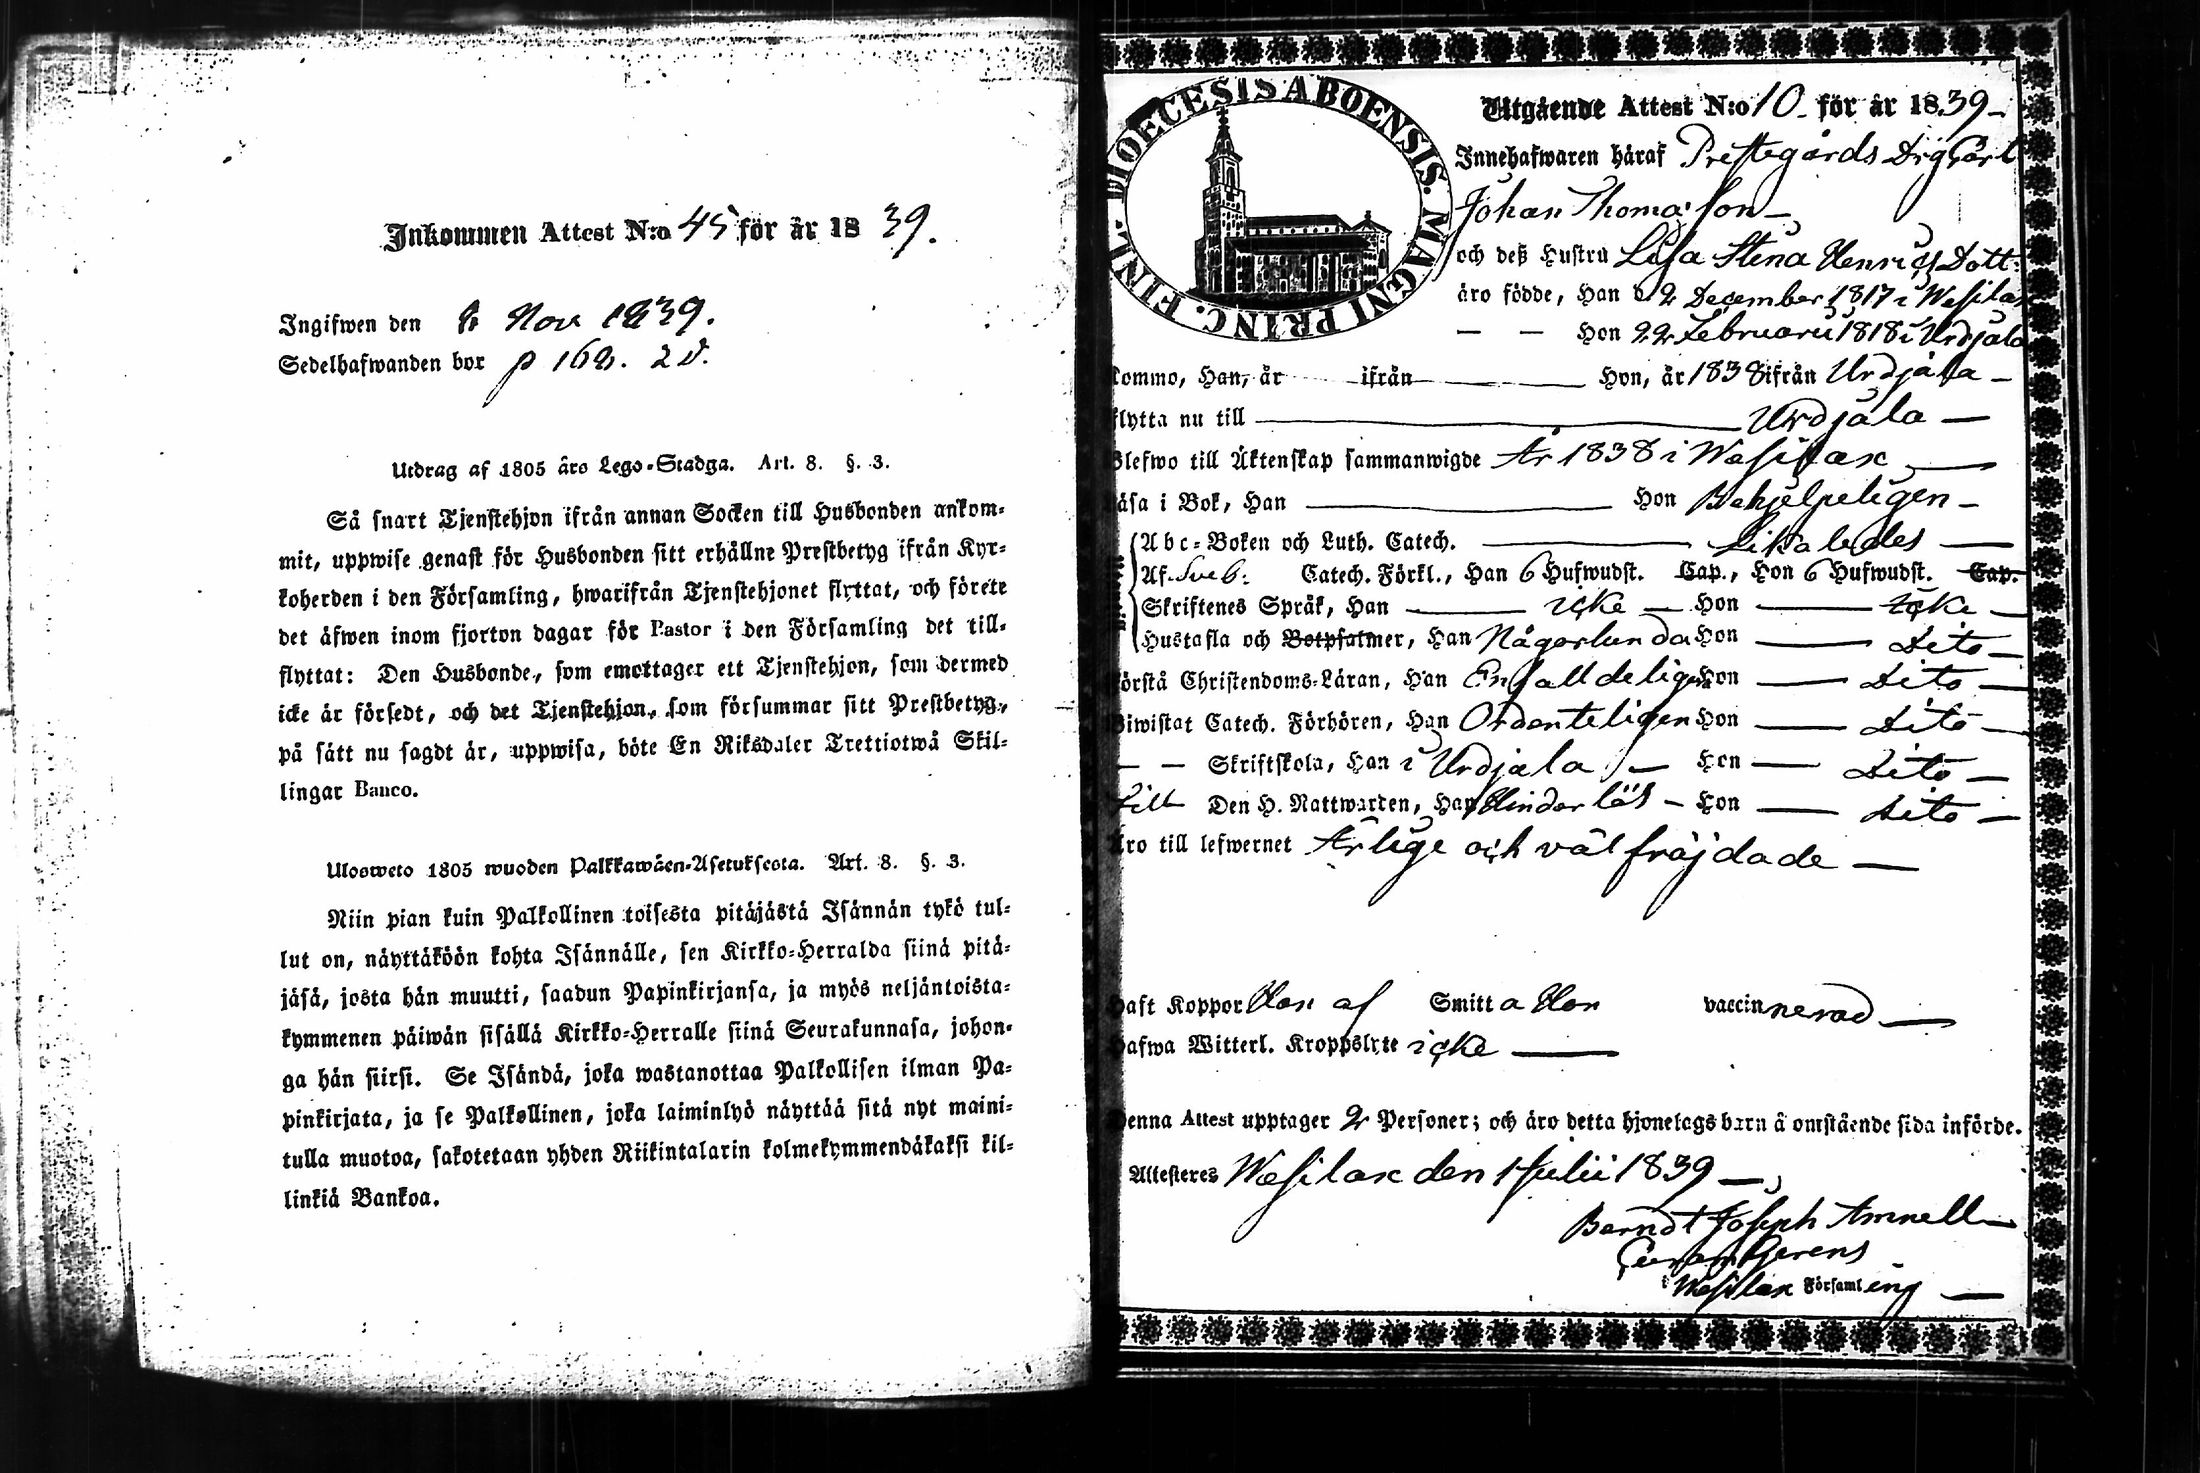 Inkommen Attest N:o 45 för år 18 39.
Ingifwen den Nov 1839.
Sedelhafwanden bor p 162. 2 d.
Utdrag af 1805 års Lego-Stadga. Art. 8. §. 3.
Så snart Tjenstehjon ifrån annan Socken till Husbonden ankom-
mit, uppwise genast för Husbonden sitt erhållne Prestbetyg ifrån Kyr-
koherden i den Församling, hwarifrån Tjenstehjonet flyttat, och förete
det äfwen inom fjorton dagar för Pastor i den Församling det till-
flyttat: Den Husbonde, som emottager ett Tjenstehjon, som dermed
icke är försedt, och det Tjenstehjon, som försummar sitt Prestbetyg,
på sätt nu sagdt är, uppwisa, böte En Riksdaler Trettiotwå Skil-
lingar Banco.
Ulosweto 1805 wuoden Palkkawäen-Asetuksesta. Art. 8. §. 3.
Niin pian kuin Palkollinen toisesta pitäjästä Isännän tykö tul-
lut on, näyttäköön kohta Isännälle, sen Kirkko-Herralda siinä pitä-
jäsä, josta hän muutti, saadun Papinkirjansa, ja myös neljäntoista-
kymmenen päiwän sisällä Kirkko-Herralle siinä Seurakunnasa, johon-
ga hän siirsi. Se Isändä, joka wastanottaa Palkollisen ilman Pa-
pinkirjata, ja se Palkollinen, joka laiminlyö näyttää sitä nyt maini-
tulla muotoa, sakotetaan yhden Riikintalarin kolmekymmendäkaksi kil-
linkiä Bankoa.
FINL. DIOECESIS ABOENSIS. MAGNI PRINC.
Utgående Attest N:o 10 för år 1839
Innehafwaren häraf Prestegårds
Johan Thomasson
och deß Hustru Lisa Stina Henrics Dott:
äro födde, Han d 2 December 1817 i Wesilax
— — Hon 22 Februarii 1818 i Urdjala
kommo, Han, år ifrån Hon, år 1838 ifrån Urdjala
flytta nu till Urdjala
Blefwo till Äktenskap sammanwigde År 1838 i Wesilax
läsa i Bok, Han Hon Behjelpeligen
Abc-Boken och Luth. Catech. Likaledes
Af Sveb: Catech. Förkl., Han 6 Hufwudst. Cap., Hon 6 Hufwudst. Cap.
Skriftenes Språk, Han icke Hon icke
Hustafla och Botpsalmer, Han Någorlunda Hon Dito
Förstå Christendoms-Läran, Han Enfalldeligen Hon Dito
Biwistat Catech. Förhören, Han Ordenteligen Hon Dito
— — Skriftskola, Han i Urdjala Hon Dito
Till Den H. Nattwarden, Han Hinderlös Hon Dito
Äro till lefwernet Ärlige och väl fräjdade
Haft Koppor Han af Smitta Hon vaccinnerad
Hafwa Witterl. Kroppslyte icke
Denna Attest upptager 2 Personer; och äro detta hjonelags barn å omstående sida införde.
Attesteres Wesilax den 1 Julii 1839
Berndt Joseph Amnell
Curam Gerens
i Wesilax Församling